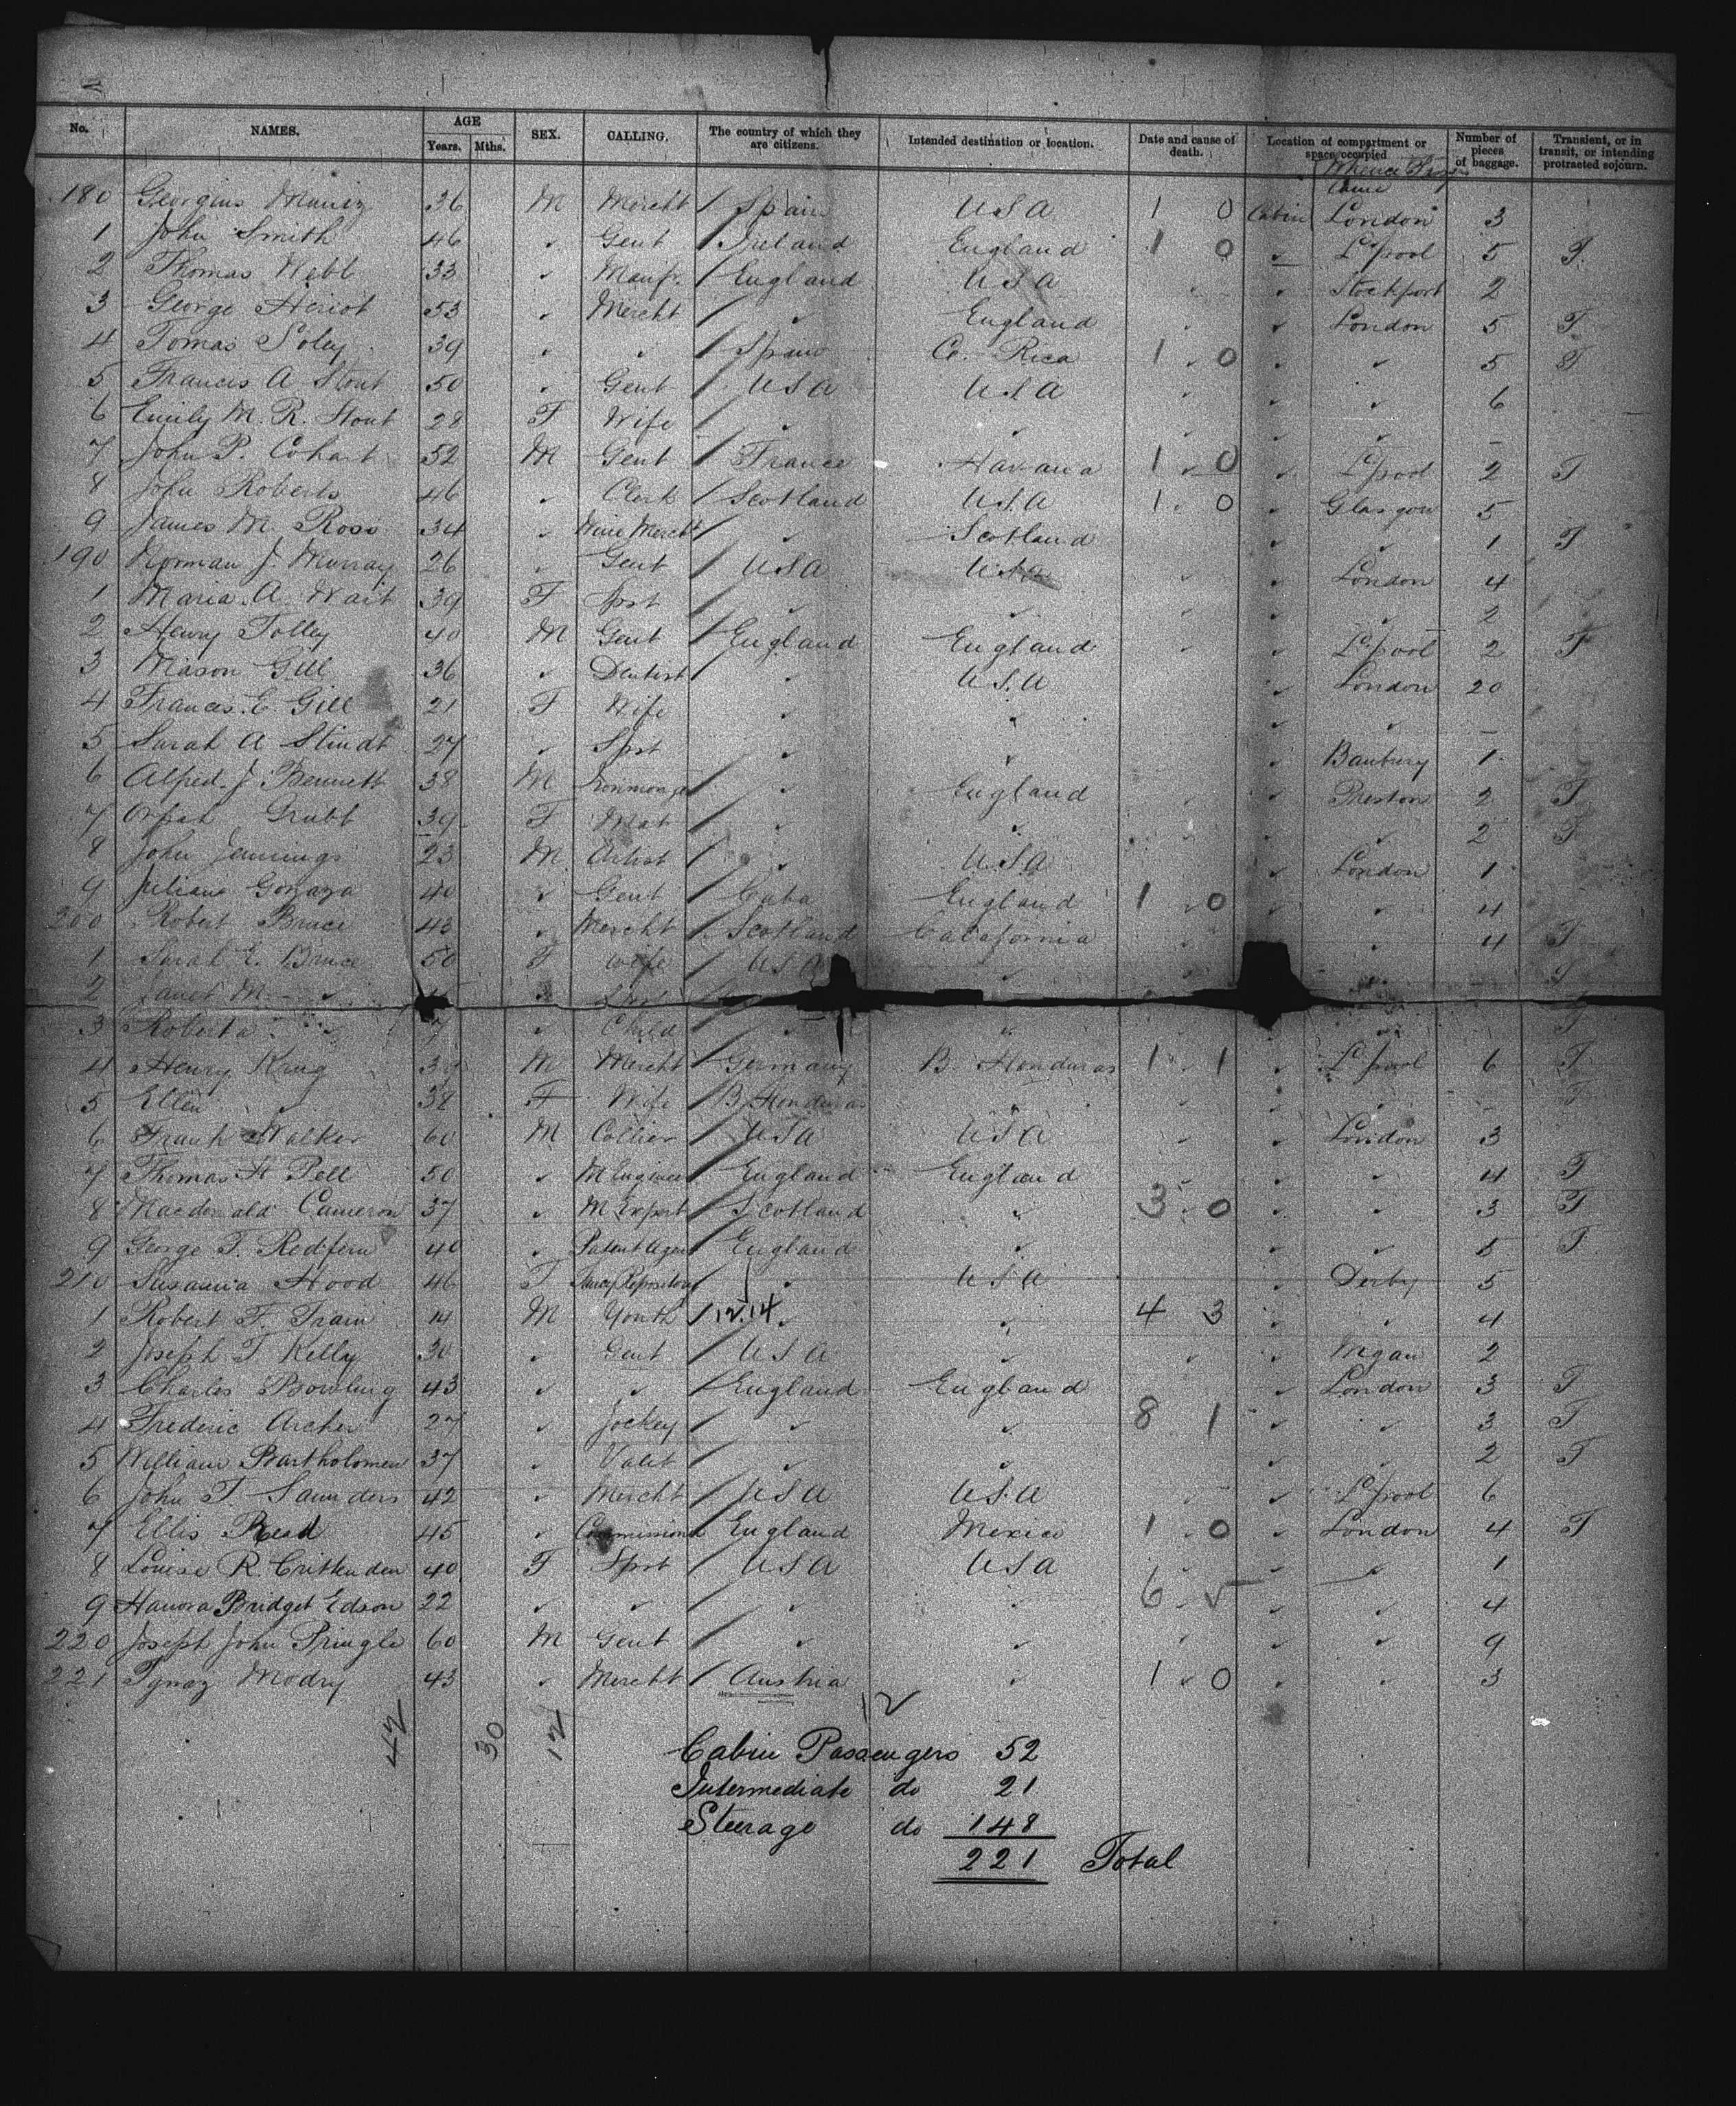 No. NAMES. AGE Years. Mths. SEX. CALLING. The country of which they are citizens. Intended destination or location. Date and cause of death. Location of compartment or space occupied Number of pieces of baggage. Transient, or in transit, or intending protracted sojourn.
Whence
Came
180 Georgius 36 M Mercht / Spain USA 1 0 Cabin London 3
1 John Smith 46 ✓ Gent / Ireland England 1 0 ✓ L'pool 5 T
2 Thomas Webb 33 ✓ Manfr. / England USA ✓ Stockport 2
3 George Heriot 53 ✓ Mercht / ✓ England ✓ London 5 T
4 Tomas Soley 39 ✓ ✓ / Spain Co. Rica 1 0 ✓ ✓ 5 T
5 Francis A Stout 50 ✓ Gent / USA USA ✓ ✓ 6
6 Emily M. R. Stout 28 F Wife / ✓ ✓ ✓ ✓ –
7 John P. Cohart 52 M Gent / France Havana 1 0 ✓ L'pool 2 T
8 John Roberts 46 ✓ Clerk / Scotland USA 1 0 ✓ Glasgow 5
9 James M. Ross 34 ✓ Wine Mercht / ✓ Scotland ✓ ✓ 1 T
190 Norman J. Murray 26 ✓ Gent / USA USA ✓ London 4
1 Maria A Wait 39 F Spst / ✓ ✓ ✓ ✓ 2
2 Henry Tolley 40 M Gent / England England ✓ L'pool 2 T
3 Mason Gill 36 ✓ Dentist / ✓ USA ✓ London 20
4 Frances E. Gill 21 F Wife ✓ ✓ ✓ ✓ –
5 Sarah A Stindt 27 ✓ Spst / ✓ ✓ ✓ Banbury 1
6 Alfred J. Bennett 38 M Ironmonger / ✓ England ✓ Preston 2 T
7 Orpah Grubb 39 F Mat / ✓ ✓ ✓ ✓ 2 T
8 John Jennings 23 M Artist / ✓ USA ✓ London 1
9 Juliana 40 ✓ Gent / Cuba England 1 0 ✓ ✓ 4
200 Robert Bruce 43 ✓ Mercht / Scotland California ✓ 4 T
1 Sarah E. Bruce 50 F Wife / USA ✓ T
2 Janet M. ✓ ✓ Spst /
3 Roberta ✓ 7 ✓ Child / ✓ ✓ ✓ T
4 Henry Krug M Mercht / Germany B. Honduras 1 1 ✓ L'pool 6 T
5 Ellen ✓ 38 F Wife / B. Honduras ✓ ✓ ✓ – T
6 Frank Walker 60 M Collier / USA USA ✓ London 3
7 Thomas H Pell 50 ✓ M Engineer / England England ✓ ✓ 4 T
8 Macdonald Cameron 37 ✓ M Expert / Scotland ✓ 3 0 ✓ ✓ 3 T
9 George F. Redfern 40 ✓ Patent Agent / England ✓ ✓ ✓ 5 T
210 Susanna Hood 46 F Fancy Repository / ✓ USA ✓ Derby 5
1 Robert F. Train 14 M Youth / 12.14 ✓ ✓ 4 3 ✓ ✓ 4
2 Joseph T Kelly 30 ✓ Gent / USA ✓ ✓ Wigan 2
3 Charles Bowling 43 ✓ ✓ / England England ✓ London 3 T
4 Frederic Archer 27 ✓ Jockey / ✓ ✓ 8 1 ✓ ✓ 3 T
5 William Bartholomew 37 ✓ Valet / ✓ ✓ ✓ ✓ 2 T
6 John T. Saunders 42 ✓ Mercht / USA USA ✓ L'pool 6
7 Ellis Read 45 ✓ Commission / England Mexico 1 0 ✓ London 4 T
8 Louise R. Crittenden 40 F Spst / USA USA ✓ 1
9 Hanora Bridget Edson 22 ✓ ✓ / ✓ ✓ 6 ✓ ✓ ✓ 4
220 Joseph John Pringle 60 M Gent / ✓ ✓ ✓ ✓ 9
221 Ignaz Modry 43 ✓ Mercht / Austria ✓ 1 0 ✓ ✓ 3
42 30 12 12
Cabin Passengers 52
Intermediate do 21
Steerage do 148
221 Total